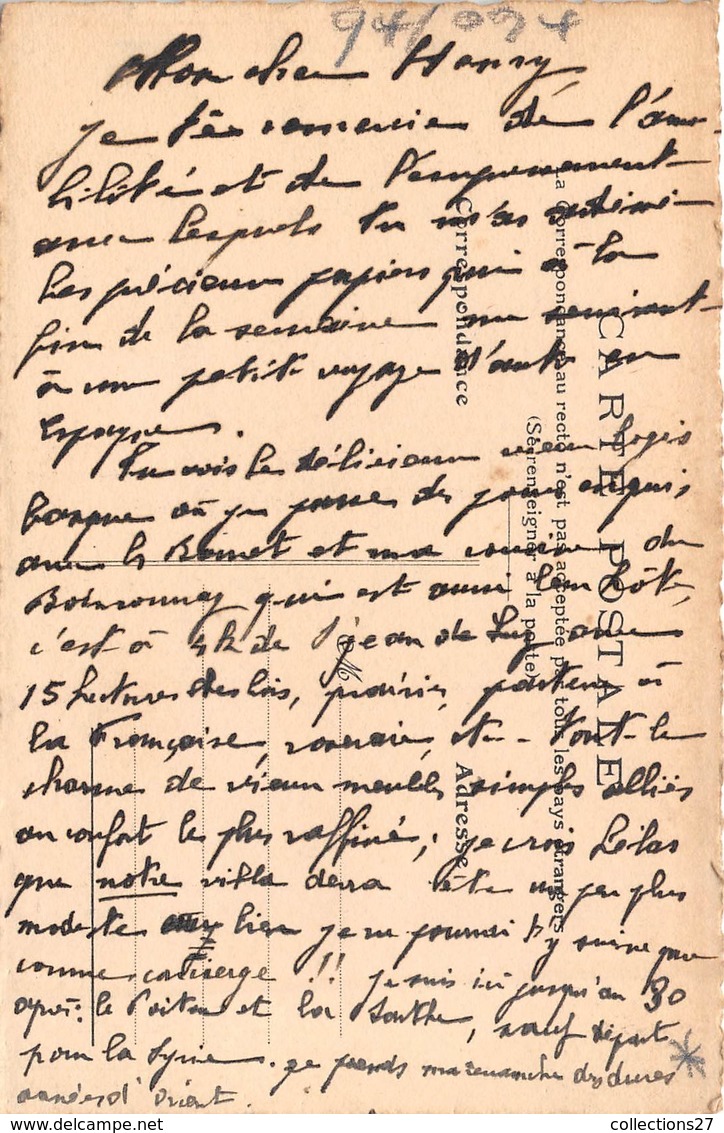 94/094
Mon cher Henry
je te remercie de l'ama-
bilité et de l'empressement
avec lesquels tu m'as
les précieux papiers qui à la
fin de la semaine me serviront
à un petit voyage d'auto en
Espagne.
Tu vois le délicieux vieux logis
basque où je passe des jours exquis
avec les et ma cousine du
qui est aussi leur hôte,
c'est à 4k de St Jean de Luz avec
15 hectares des bois, prairies, parterre à
la Française, roseraie, etc - Tout le
charme de vieux meubles simples alliés
au confort le plus raffiné; je crois hélas
que notre villa devra être un peu plus
modeste ou bien je ne pourrai y vivre que
comme concierge !! je suis ici jusqu'au 30
après: le Poitou et la Sarthe, sauf départ
pour la Syrie. je prends ma revanche des dures
années d'Orient.
CARTE POSTALE
La Correspondance au recto n'est pas acceptée par tous les pays étrangers
(Se renseigner à la poste)
Correspondance
Adresse
M
collections27